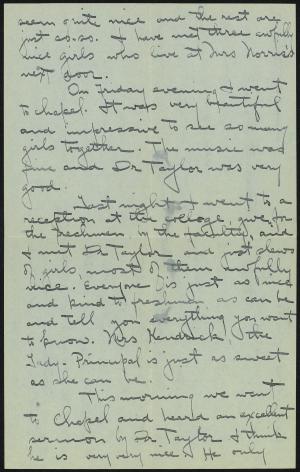 seem quite nice and the rest are
just so-so. I have met three awfully
nice girls who live at Mrs Norris's
next door.
On Friday evening I went
to chapel. It was very beautiful
and impressive to see so many
girls together. The music was
fine and Dr Taylor was very
good.
Last night I went to a
reception at the college, given for
the freshmen by the faculty, and
I met Dr Taylor and just slews
of girls, most of them awfully
nice. Everyone is just as nice
and kind to freshmen as can be
and tell you everything you want
to know. Mrs Kendrick, the
Lady-Principal is just as sweet
as she can be.
This morning we went
to Chapel and heard an excellent
sermon by Dr Taylor. I think
he is very very nice. He only